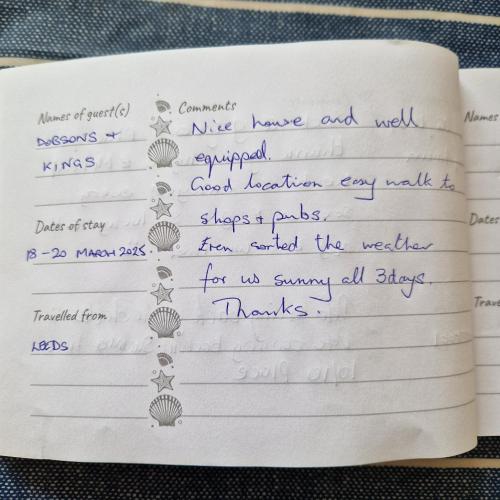 Names of guest(s)
DOBSONS +
KINGS
Dates of stay
18 - 20 MARCH 2025.
Travelled from
LEEDS
Comments
Nice house and well
equipped.
Good location easy walk to
shops + pubs.
Even sorted the weather
for us sunny all 3 days.
Thanks.
Names
Dates
Trave